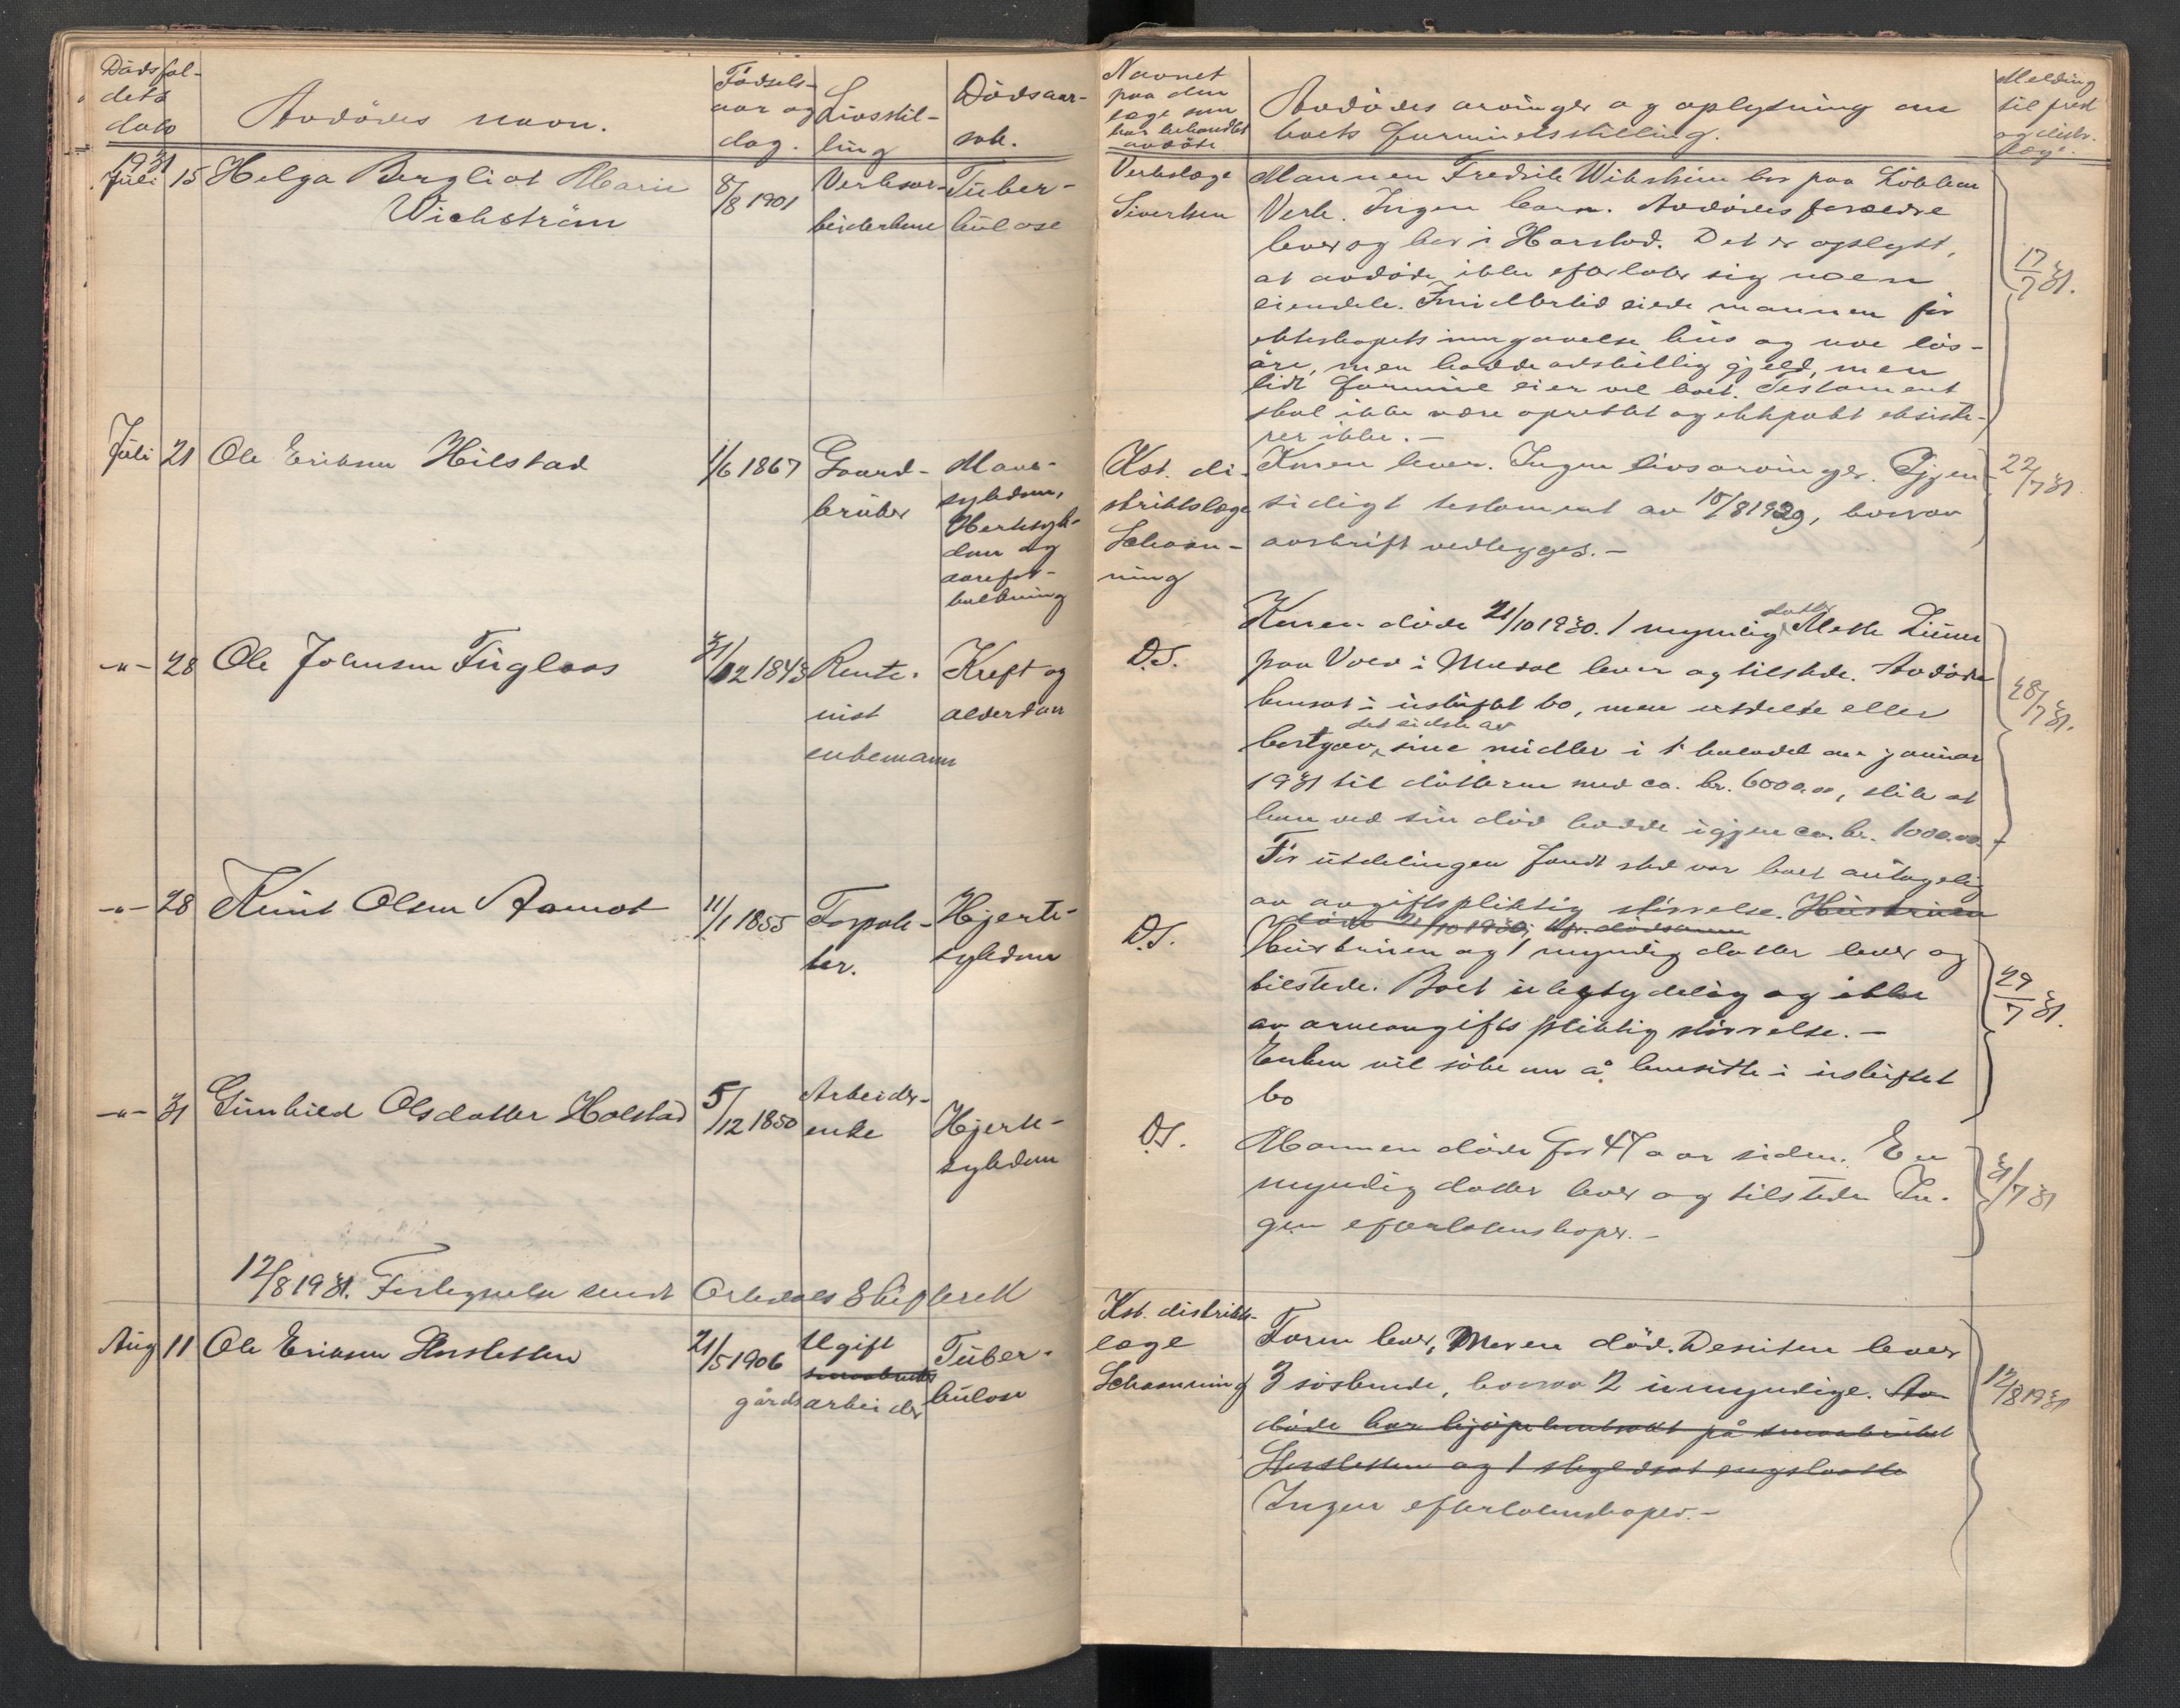 Dödsfal-
dets
dato
Avdödes navn.
Födsels-
aar og
dag.
Livsstil-
ling
Dödsaar-
sak.
Navnet
paa den
læge som
har behandlet
avdöde
Avdödes arvinger og oplysning om
boets formuesstilling.
Melding
til prest
og distr.
læge.
1931
Juli 15 Helga Bergliot Marie
Wichström
8/8 1901
Verksar-
beiderkone
Tuber-
kulose
Verkslæge
Sivertsen
Mannen Fredrik Wikström bor paa Lökken
Verk. Ingen barn. Avdödes forældre
lever og bor i Harstad. Det er oplyst,
at avdöde ikke efterlater sig noen
eiendele. Imidlertid eiede mannen för
ekteskapets inngaaelse hus og noe lös-
öre, men hadde adskillig gjeld, men
litt formue eier vel boet. Testament
skal ikke være oprettet og ektepakt eksiste-
rer ikke. –
17/7 31.
Juli 21 Ole Eriksen Hilstad
1/6 1867
Gaard-
bruker
Mave-
sykdom,
Hjertesyk-
dom og
aarefor-
kalkning
Kst. di-
striktslæge
Schøn-
ning
Konen lever. Ingen livsarvinger. Gjen-
sidigt testament av 15/8 1929, hvorav
avskrift vedlegges. –
22/7 31
-"- 28 Ole Johnsen Fugleaas
31/12 1843
Rente-
nist
enkemann
Kreft og
alderdom
D.S.
Konen döde 21/10 1930. 1 myndig datter Mette
paa Voll i Meldal lever og tilstede. Avdöde
hensat i uskiftet bo, men utdelte eller
bortgav det sidste av sine midler i 1 halvdel av januar
1931 til datteren med ca. kr. 6000.00, slik at
han ved sin död hadde igjen ca. kr. 1000.00.
För utdelingen fandt sted var boet antagelig
av avgiftspliktig störrelse. Hustruen
döde 21/10 1930,
28/7 31.
-"- 28 Knut Olsen Aamot
11/1 1855
Forpak-
ter.
Hjerte-
sykdom
D.S.
Hustruen og 1 myndig datter lever og
tilstede. Boet ubetydelig og ikke
av arveavgiftspliktig störrelse. –
Enken vil söke om å hensitte i uskiftet
bo
29/7 31.
-"- 31 Gunhild Olsdatter Holstad
5/12 1850
Arbeider-
enke
Hjerte-
sykdom
D.S.
Mannen döde for 47 aar siden. En
myndig datter lever og tilstede In-
gen efterlatenskaper. –
31/7 31
12/8 1931. Fortegnelse sendt Orkedals Skifterett
Aug 11 Ole Eriksen
21/5 1906
Ugift
småbruker
gårdsarbeider
Tuber-
kulose
Kst. distrikts-
læge
Schønning
Faren lever, Moren död. Desuten lever
3 söskende, hvorav 2 umyndige. Av-
döde har på småbruket
og 1
Ingen efterlatenskaper. –
12/8 1931